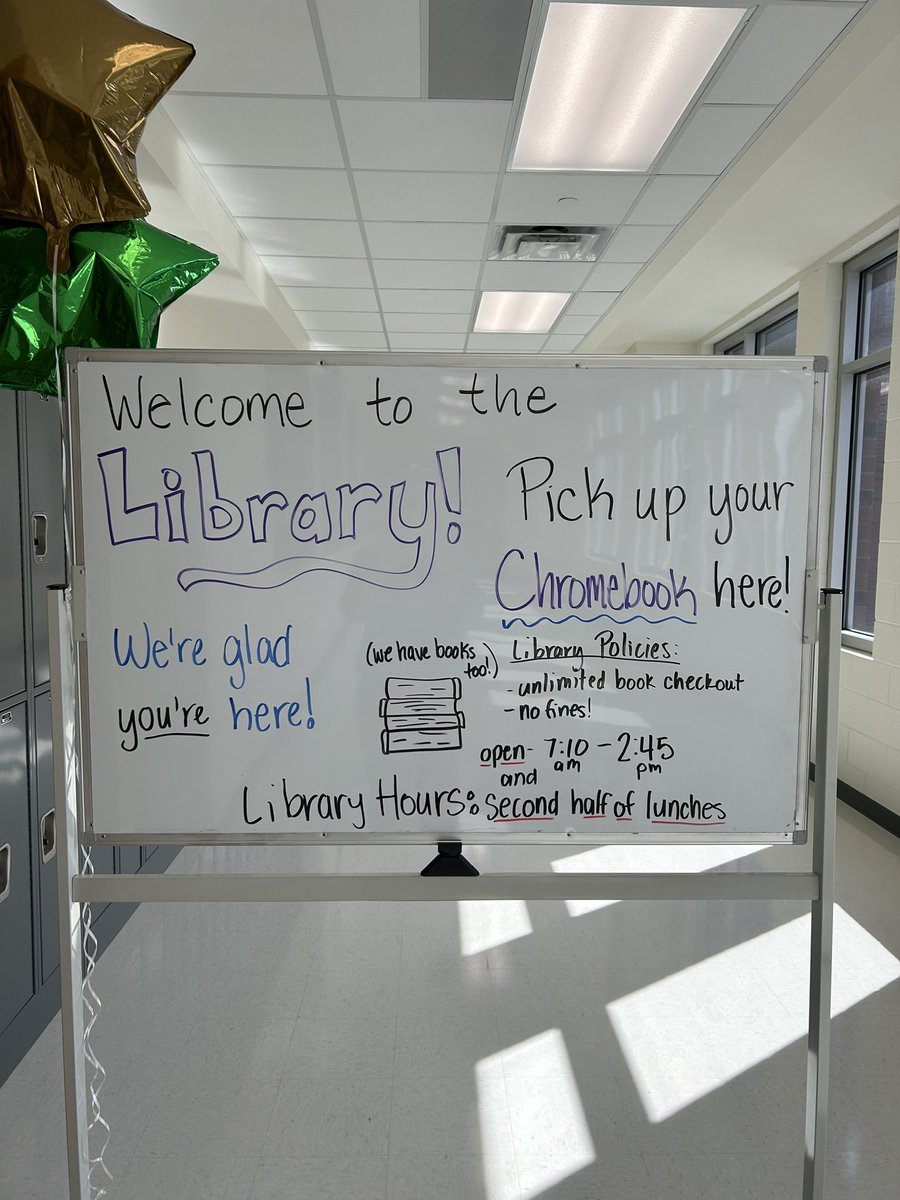 Welcome to the
Library!
Pick up your
Chromebook here!
We're glad
you're here!
(we have books
too!)
Library Policies:
- unlimited book checkout
- no fines!
open- 7:10 - 2:45
am pm
and
Library Hours: second half of lunches